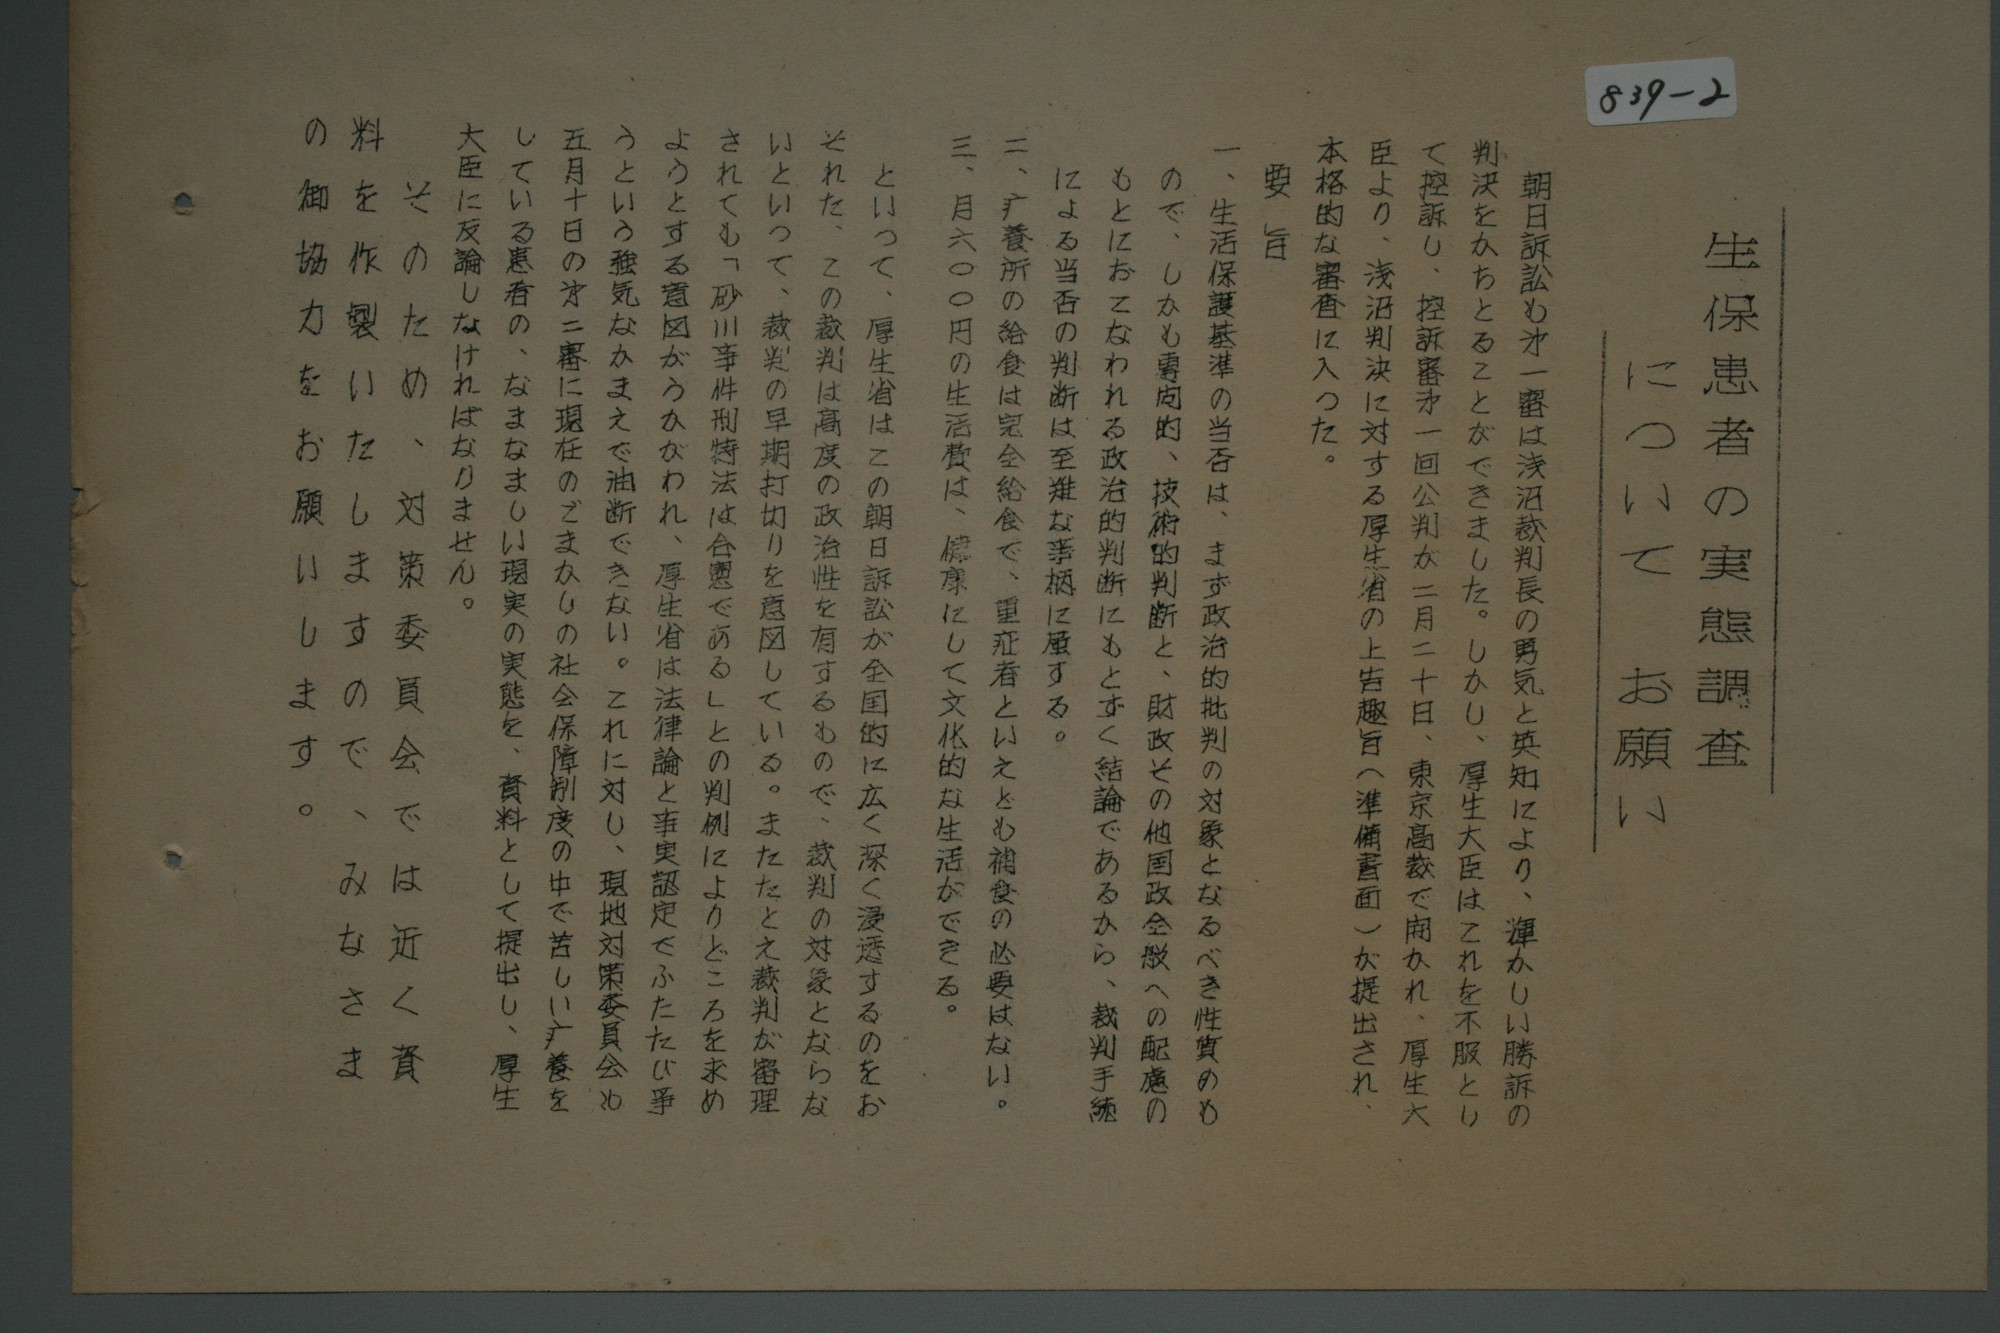 839-2
生保患者の実態調査
について お願い
朝日訴訟も才一審は浅沼裁判長の勇気と英知により、輝かしい勝訴の
判決をかちとることができました。しかし、厚生大臣はこれを不服とし
て控訴し、控訴審才一回公判が二月二十日、東京高裁で開かれ、厚生大
臣より、浅沼判決に対する厚生省の上告趣旨(準備書面)が提出され、
本格的な審査に入つた。
要旨
一、生活保護基準の当否は、まず政治的批判の対象となるべき性質のも
ので、しかも専向的、技術的判断と、財政その他国政全般への配慮の
もとにおこなわれる政治的判断にもとずく結論であるから、裁判手続
による当否の判断は至難な事柄に属する。
二、疒養所の給食は完全給食で、重症者といえども補食の必要はない。
三、月六〇〇円の生活費は、健康にして文化的な生活ができる。
といつて、厚生省はこの朝日訴訟が全国的に広く深く浸透するのをお
それた、この裁判は高度の政治性を有するもので、裁判の対象とならな
いといつて、裁判の早期打切りを意図している。またたとえ裁判が審理
されても「砂川事件刑特法は合憲である」との判例によりどころを求め
ようとする意図がうかがわれ、厚生省は法律論と事実認定でふたたび争
うという強気なかまえで油断できない。これに対し、現地対策委員会も
五月十日の才二審に現在のごまかしの社会保障制度の中で苦しい疒養を
している患者の、なまなましい現実の実態を、資料として提出し、厚生
大臣に反論しなければなりません。
そのため、対策委員会では近く資
料を作製いたしますので、みなさま
の御協力をお願いします。